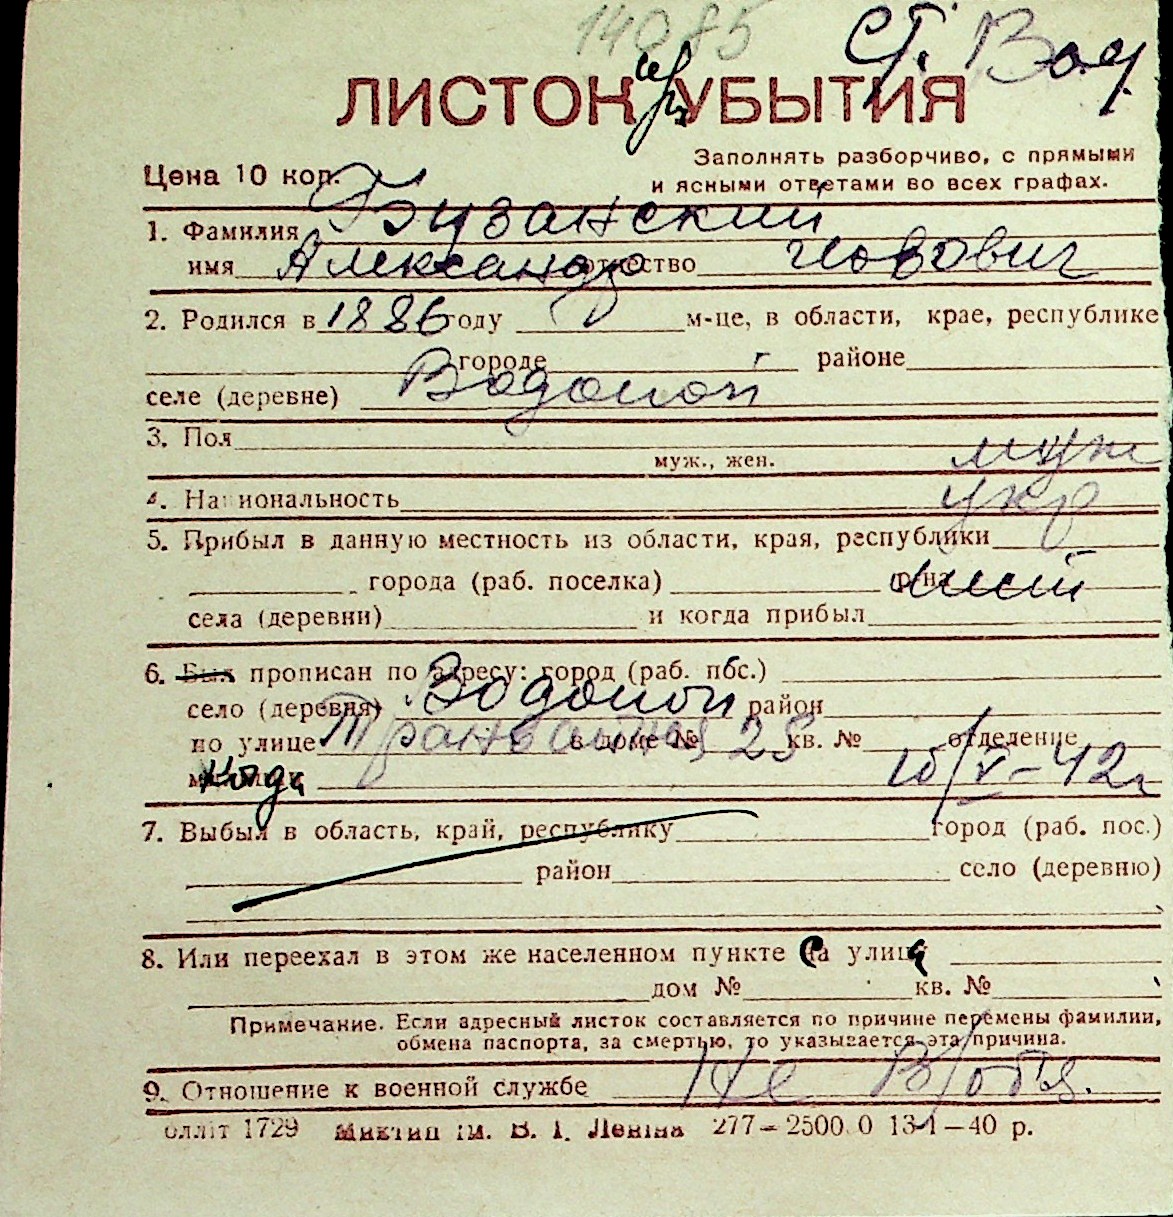 14085
ст. Вод.
ЛИСТОК УБЫТИЯ
Цена 10 коп.
Заполнять разборчиво, с прямыми
и ясными ответами во всех графах.
1. Фамилия Бузанский
имя Александр отчество Иовович
2. Родился в 1886 году м-це, в области, крае, республике
городе районе
селе (деревне) Водопой
3. Пол муж
муж., жен.
4. Национальность укр
5. Прибыл в данную местность из области, края, республики
города (раб. поселка) р-на
села (деревни) и когда прибыл
6. Был прописан по адресу: город (раб. пос.)
село (деревня) Водопой район
по улице Транвайная в доме № 28 кв. № отделение
когда 10/V-42г
7. Выбыл в область, край, республику город (раб. пос.)
район село (деревню)
8. Или переехал в этом же населенном пункте са улица
дом № кв. №
Примечание. Если адресный листок составляется по причине перемены фамилии,
обмена паспорта, за смертью, то указывается эта причина.
9. Отношение к военной службе Не в/обяз.
оллiт 1729 Миктип iм. В. I. Ленiна 277–2500.0 13-1–40 р.